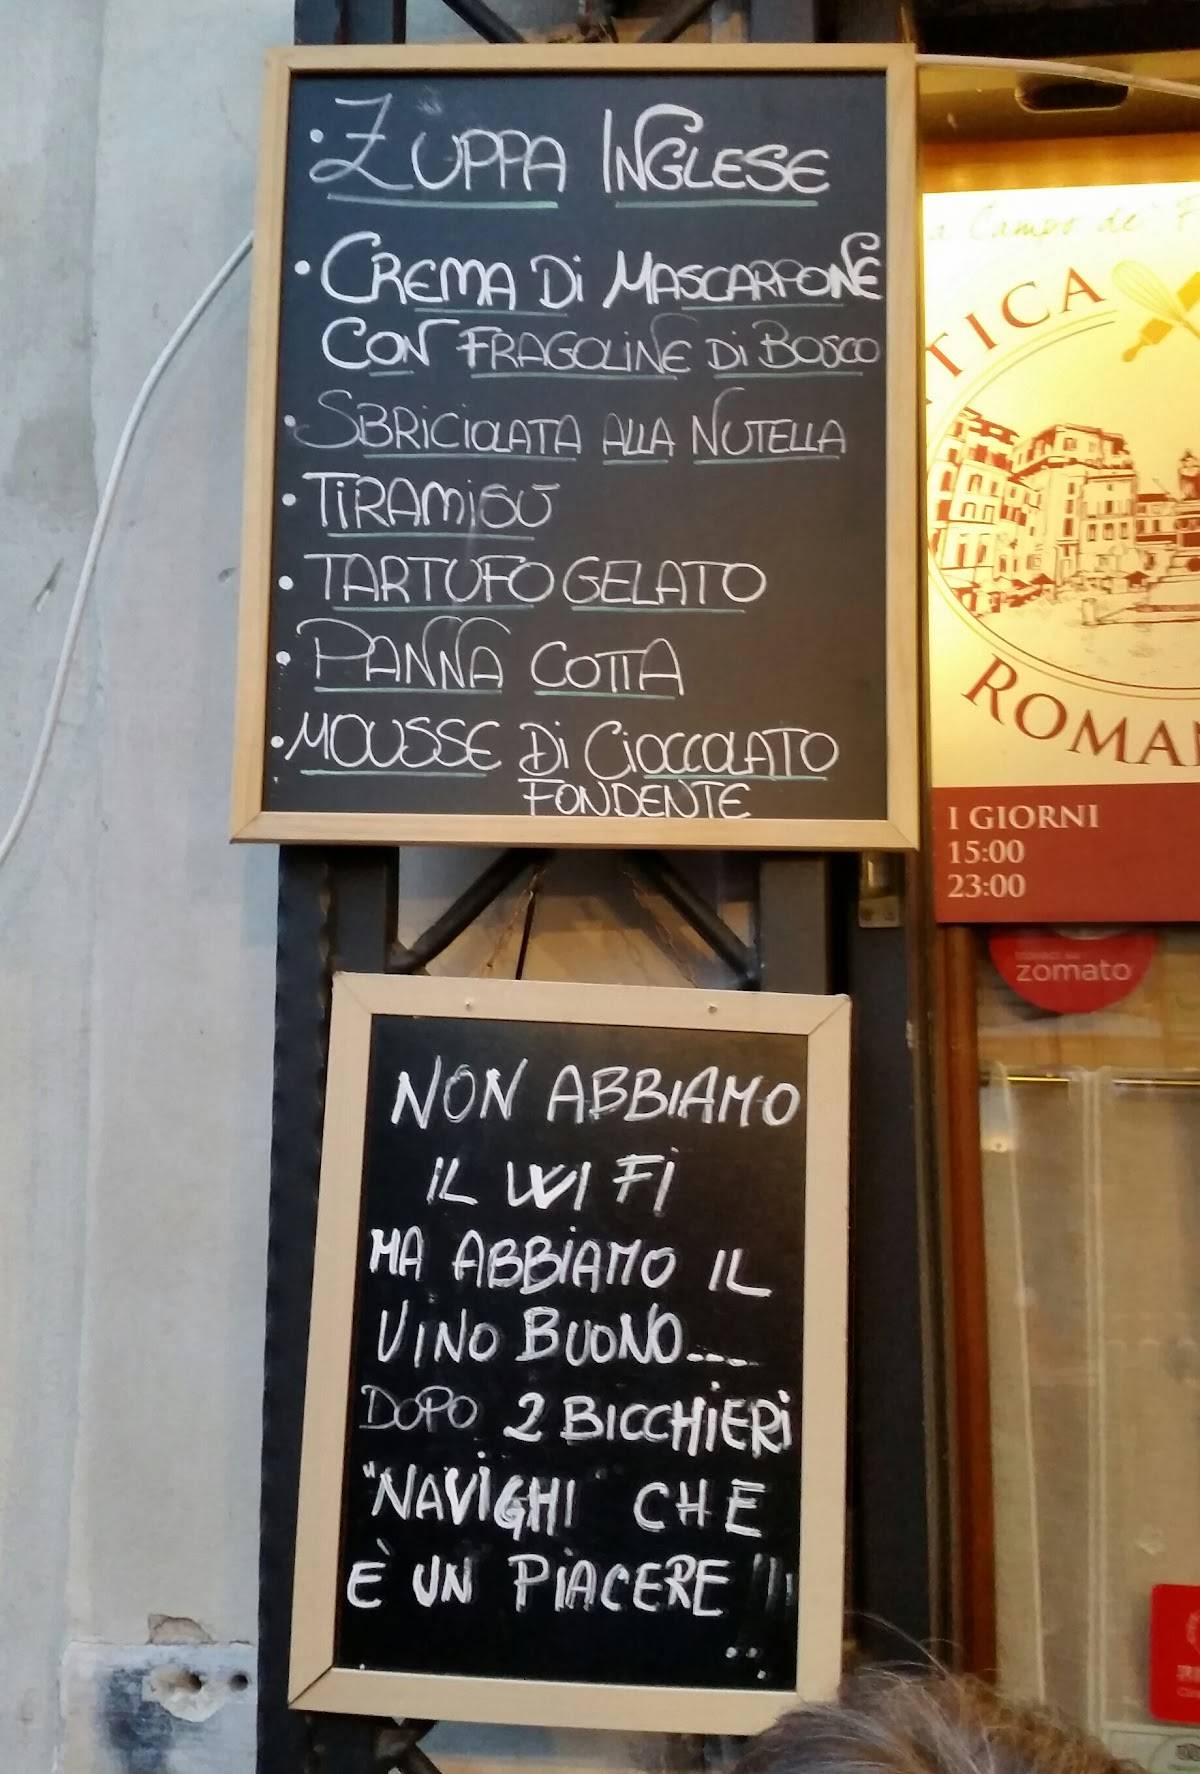 • ZUPPA INGLESE
• CREMA Di MASCARPONE
CON FRAGOLINE Di BOSCO
• SBRiCiOLATA ALLA NUTELLA
• TiRAMiSÙ
• TARTUFO GELATO
• PANNA COTTA
• MOUSSE Di CiOCCOLATO
FONDENTE
a Campo de'
ROMAN
I GIORNI
15:00
23:00
zomato
NON ABBiAMO
IL WI FI
MA ABBiAMO IL
VINO BUONO....
DOPO 2 BICCHiERi
"NAViGHI CHE
È UN PiACERE !!!